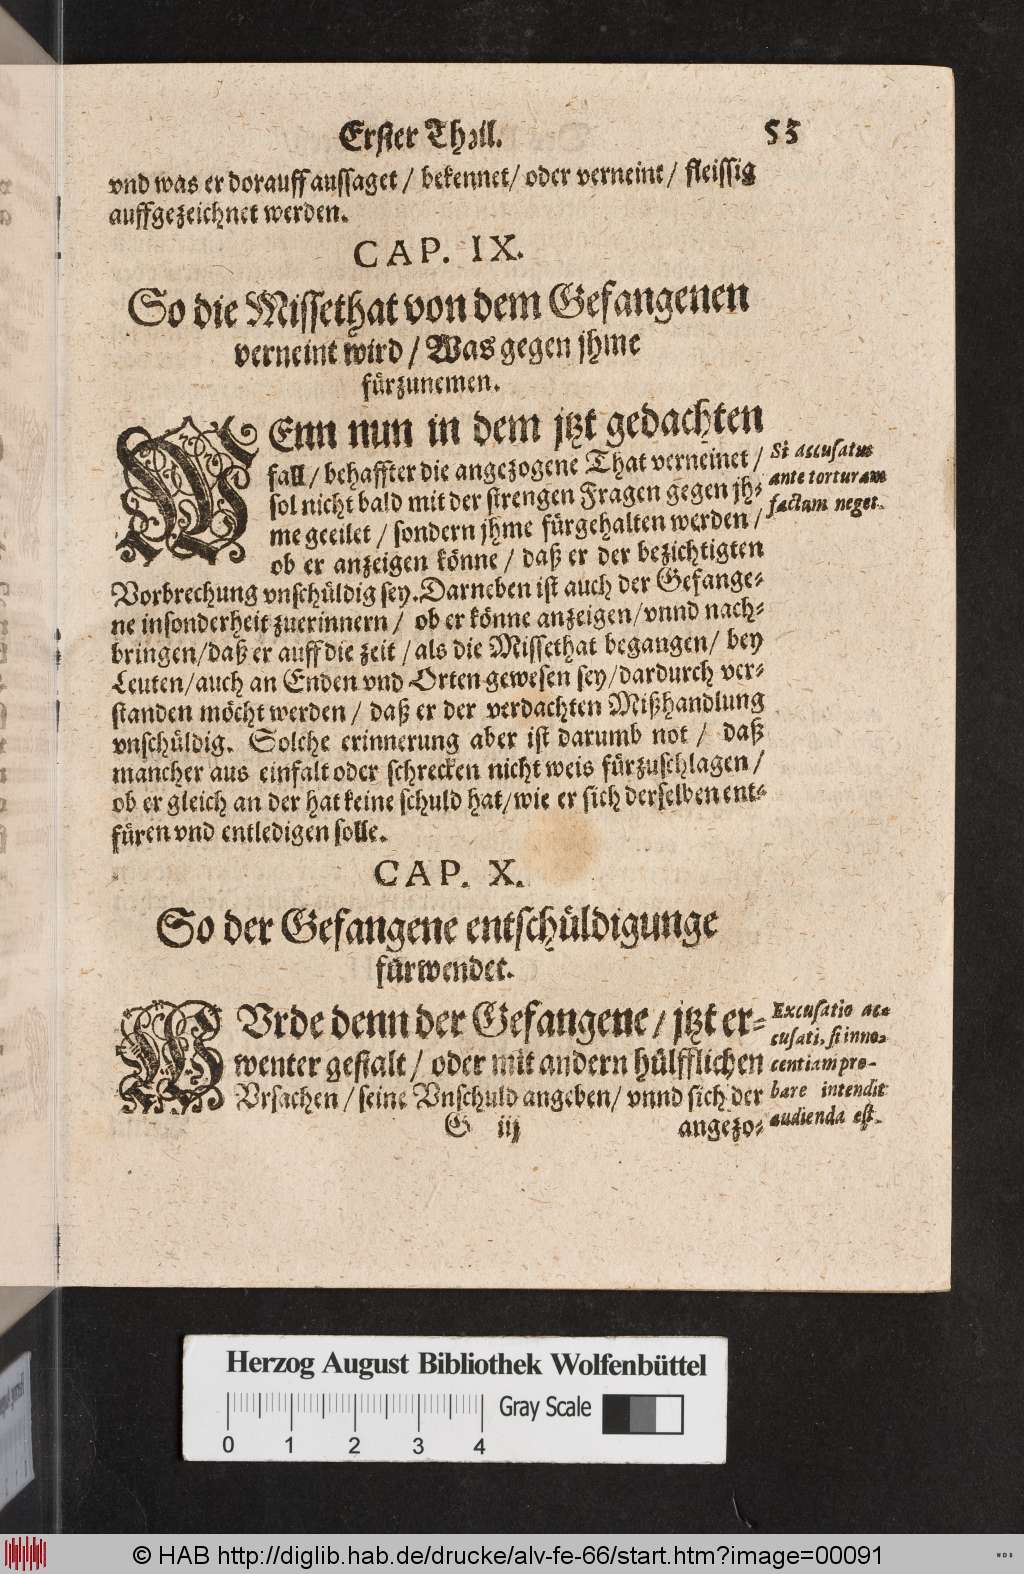 Erster Theil. 53
vnd was er dorauff aussaget / bekennet / oder verneint / fleissig
auffgezeichnet werden.
CAP. IX.
So die Missethat von dem Gefangenen
verneint wird / Was gegen jhme
fürzunemen.
WEnn nun in dem jtzt gedachten
fall / behaffter die angezogene That verneinet /
sol nicht bald mit der strengen Fragen gegen jh-
me geeilet / sondern jhme fürgehalten werden /
ob er anzeigen könne / daß er der bezichtigten
Vorbrechung vnschüldig sey. Darneben ist auch der Gefange-
ne insonderheit zuerinnern / ob er könne anzeigen / vnnd nach-
bringen / daß er auff die zeit / als die Missethat begangen / bey
Leuten / auch an Enden vnd Orten gewesen sey / dardurch ver-
standen möcht werden / daß er der verdachten Mißhandlung
vnschüldig. Solche erinnerung aber ist darumb not / daß
mancher aus einfalt oder schrecken nicht weis fürzuschlagen /
ob er gleich an der hat keine schuld hat / wie er sich derselben ent-
füren vnd entledigen solle.
Si accusatus
ante torturam
factum neget.
CAP. X.
So der Gefangene entschüldigunge
fürwendet.
WVrde denn der Gefangene / jtzt er-
wenter gestalt / oder mit andern hülfflichen
Vrsachen / seine Vnschuld angeben / vnnd sich der
G iij angezo-
Excusatio ac-
cusati, si inno-
centiam pro-
bare intendit
audienda est.
Herzog August Bibliothek Wolfenbüttel
0 1 2 3 4 Gray Scale
© HAB http://diglib.hab.de/drucke/alv-fe-66/start.htm?image=00091